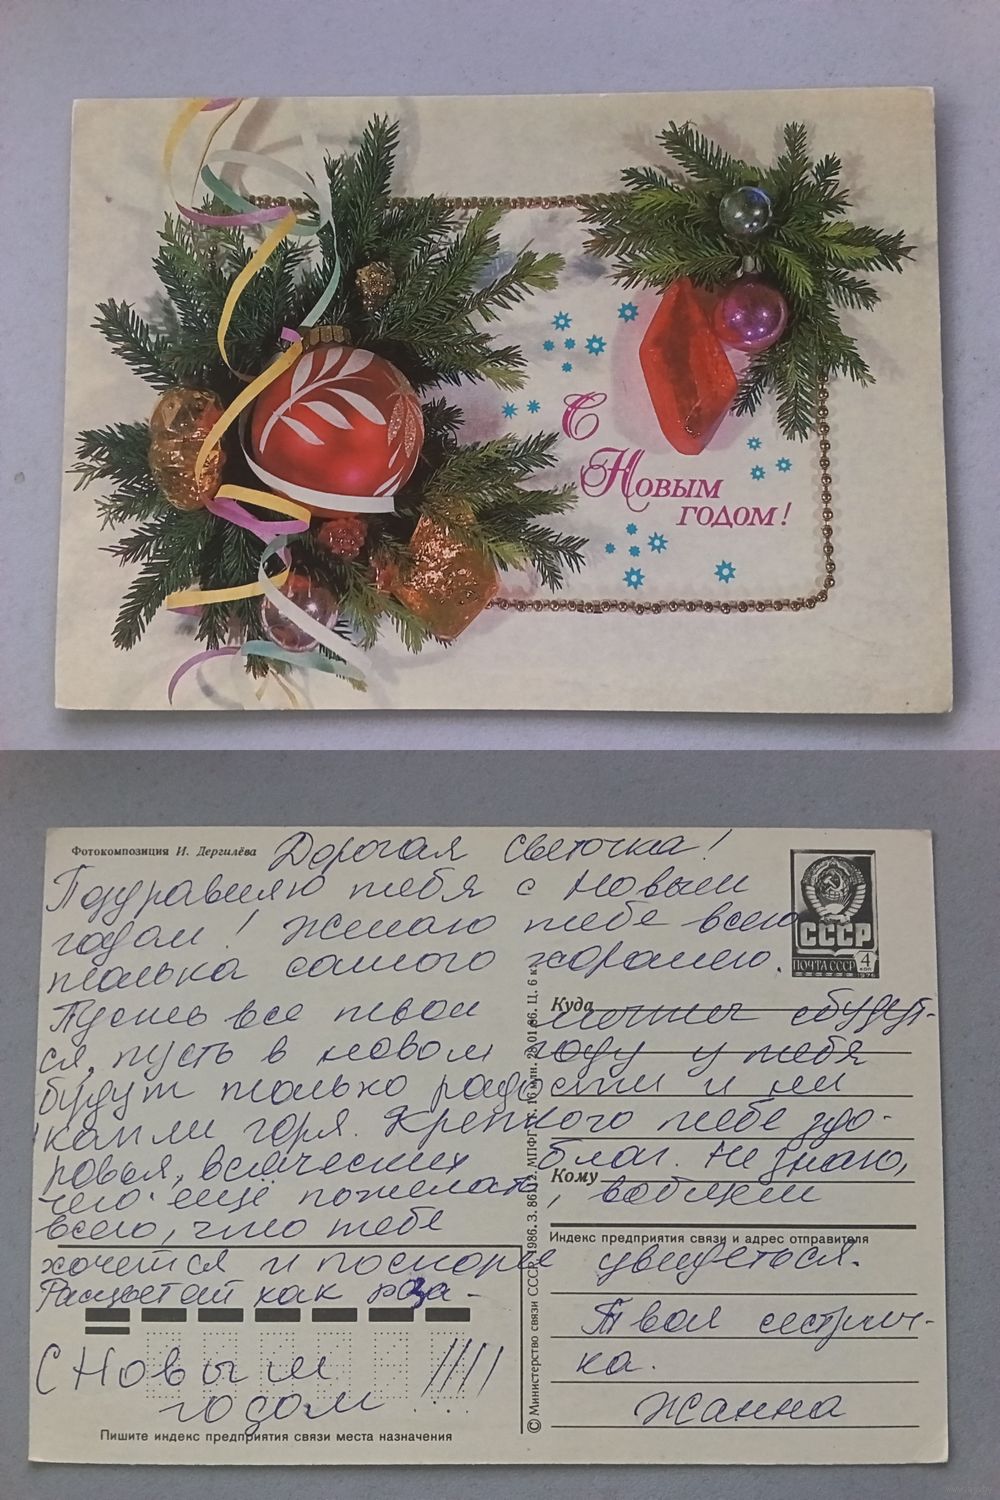 С
Новым
годом!
Фотокомпозиция И. Дергилёва
Дорогая Светочка!
Поздравляю тебя с Новым
годом! Желаю тебе всего
только самого хорошего.
Пусть все твои мечты сбудут-
ся, пусть в новом году у тебя
будут только радости и ни
капли горя. Крепкого тебе здо-
ровья, всяческих благ. Не знаю,
чего ещё пожелать, вобщем
всего, что тебе
хочется и поскорее увидеться.
Расцветай как роза -
Твоя сестрич-
ка.
Жанна
С Новым ////
годом . . .
СССР
ПОЧТА СССР
4
КОП
1976
Куда
Кому
Индекс предприятия связи и адрес отправителя
Пишите индекс предприятия связи места назначения
© Министерство связи СССР, 1986. З. МПФГ. 16 млн. 28.01.86. Ц. 6 к.